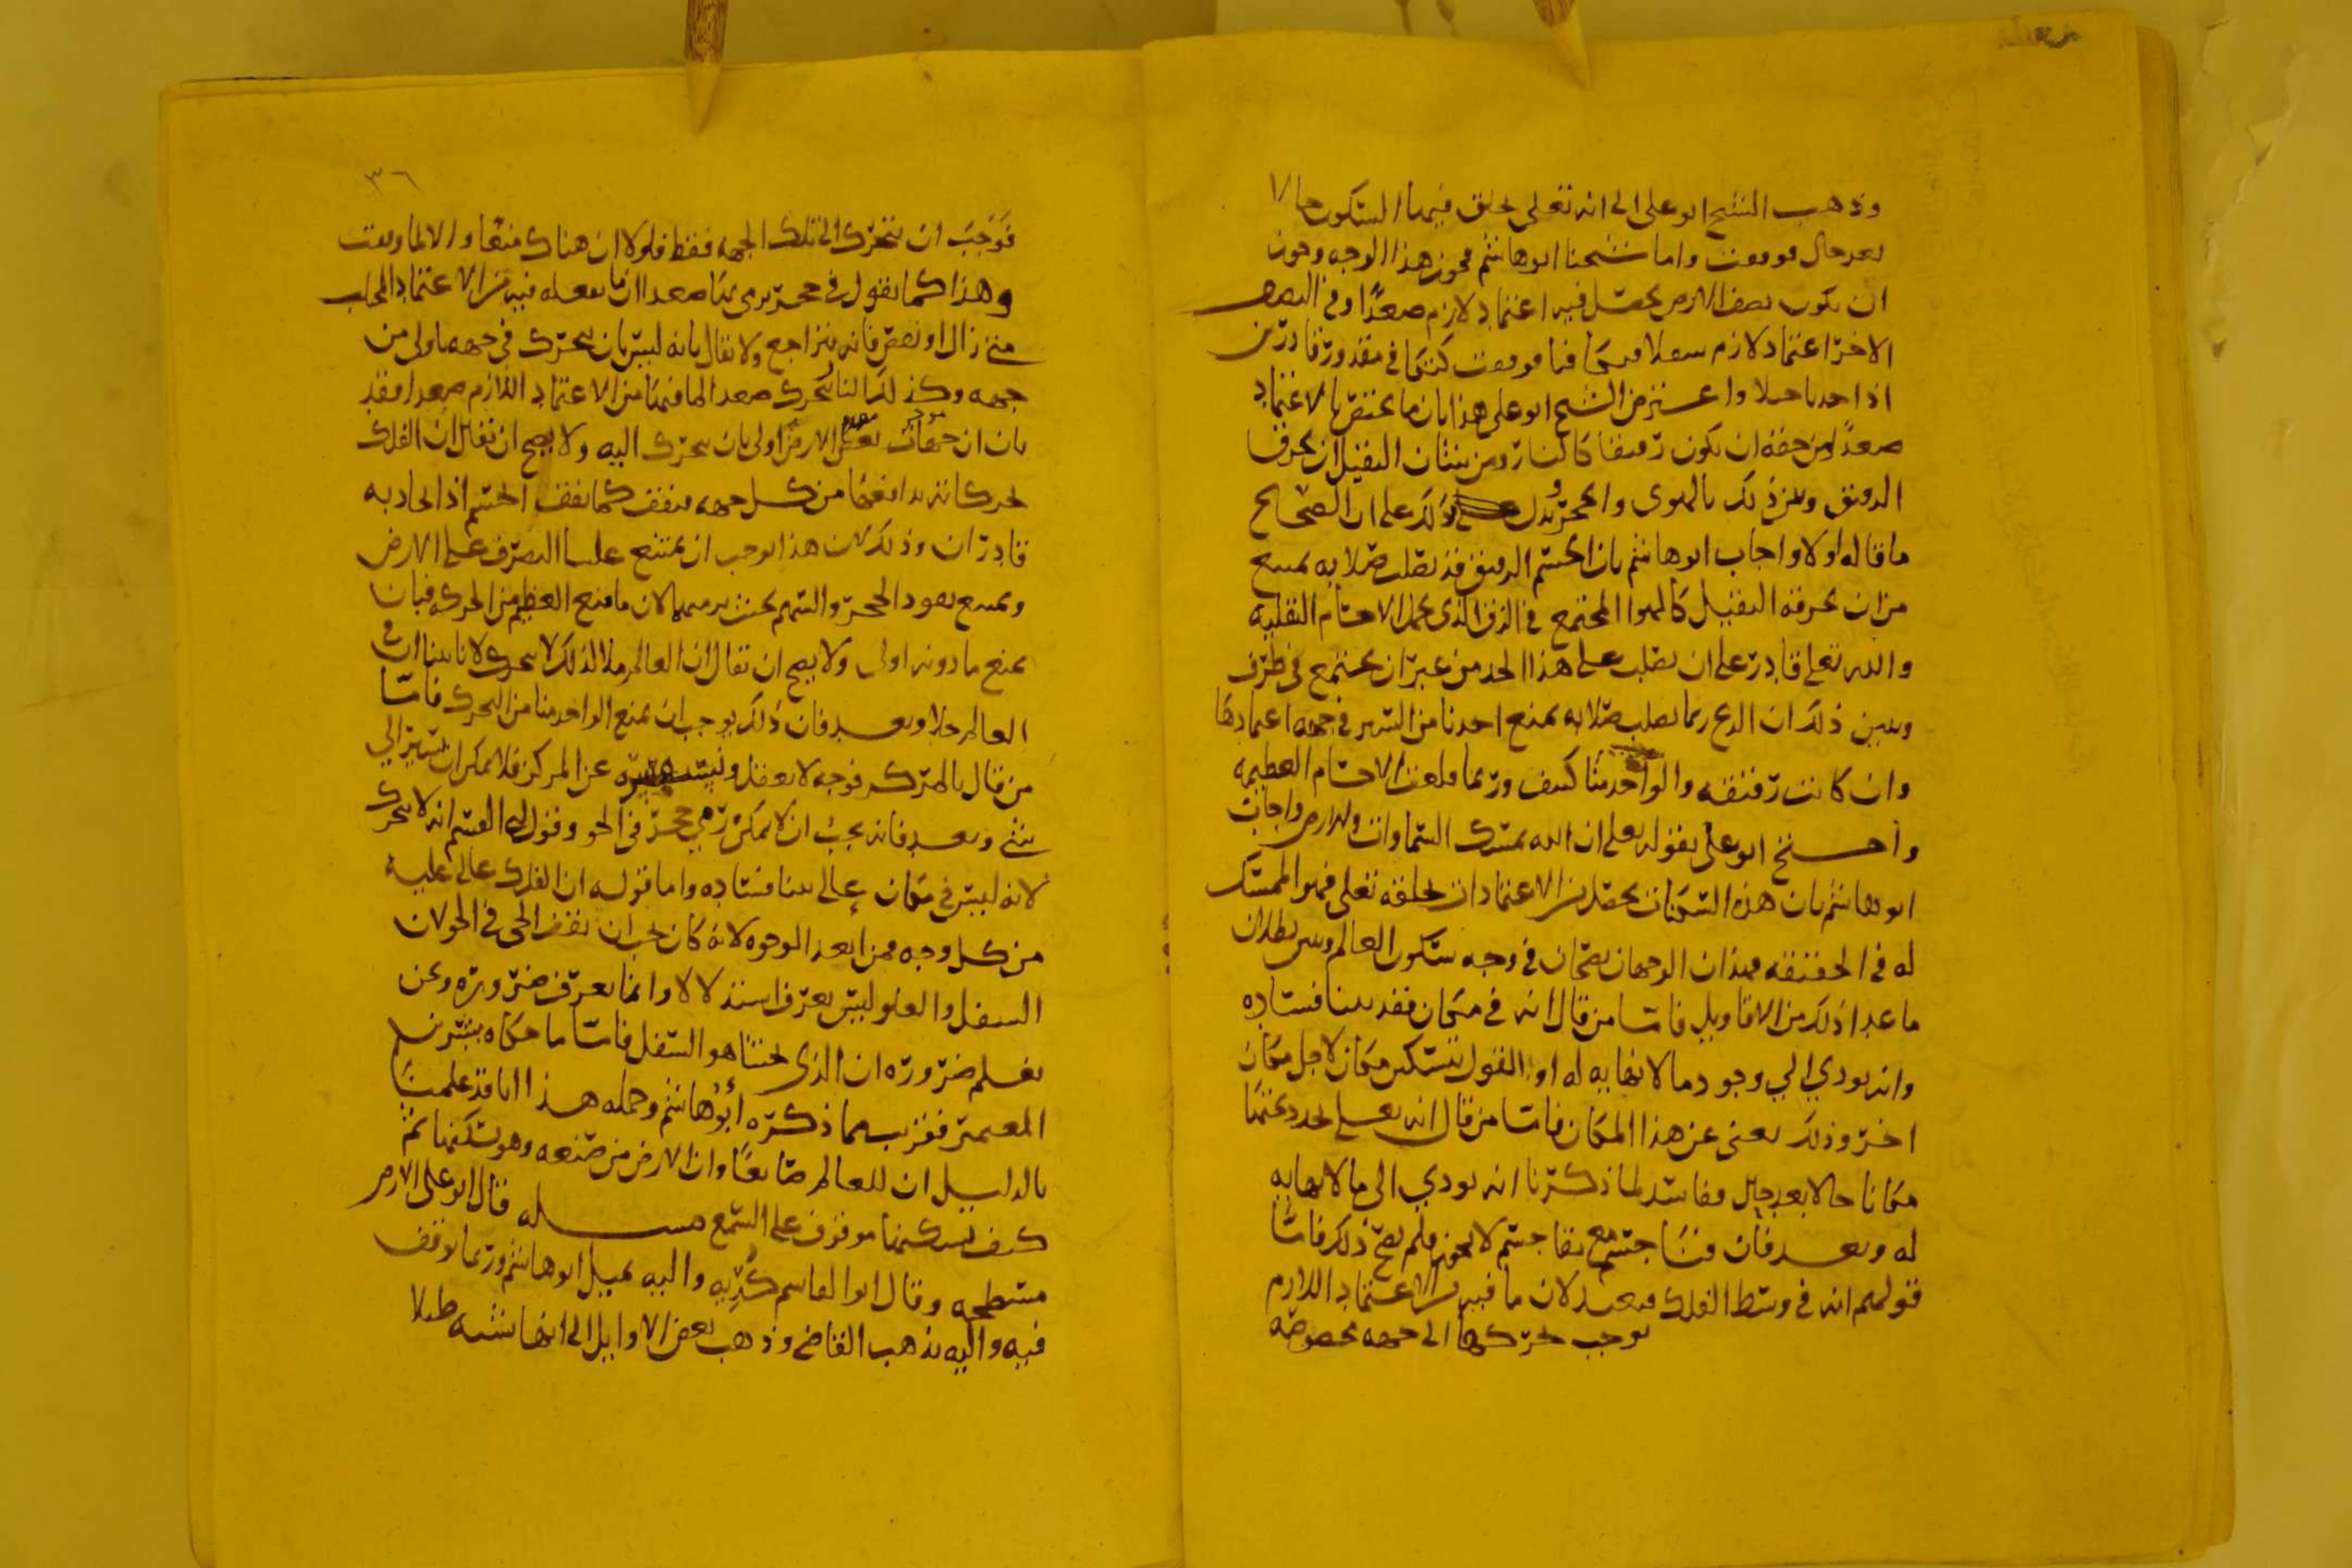 وذهب الشيخ ابو على الى انه تعلى يخلق فيها السكون حالا
بعد حال فوقفت واما شيخنا ابو هاشم فجوز هذا الوجه وجوز
ان يكون نصف الارض يحصل فيه اعتماد لازم صعدًا وفى النصف
الاخر اعتماد لازم سفلا فتكافيا فوقفت كشى فى مقدور قادرين
اذا جذباه واعترض الشيخ ابو على هذا بان ما يختص بالاعتماد
صعدًا من حقه ان يكون رقيقا كالنار ومن شان الثقيل ان يخرق
الرقيق وبين ذلك بالهوى والحجر ويدل ذلك على ان الصحيح
ما قاله اولا واجاب ابو هاشم بان الجسم الرقيق قد تصلب صلابه تمنع
من ان يخرقه الثقيل كالهوا المجتمع فى الزق الذى يحمل الاجسام الثقيله
والله تعلى قادر على ان يصلب على هذا الحد من غير ان يجتمع فى ظرف
ويبين ذلك ان الريح ربما تصلب صلابه تمنع احدنا من السير فى جهه اعتمادها
وان كانت رقيقه والواحد منا كثيف وربما قلعت الاجسام العظيمه
واحتج ابو على بقوله تعلى ان الله يمسك السماوات والارض واجاب
ابو هاشم بان هذه السكنات تحصل من الاعتمادات يخلقه تعلى فهو الممسك
له فى الحقيقه فهذان الوجهان يصحان فى وجه سكون العالم وبين بطلان
ما عدا ذلك من الاقاويل فاما من قال انه فى مكان فقد بينا فساده
وانه يودي الي وجود ما لا نهايه له او القول بتسكين مكان لا جل مكان
اخر وذلك يغنى عن هذا المكان فاما من قال انه تعلى يحدد تحتها
مكانا حالا بعد حال ففاسد لما ذكرنا انه يودي الى ما لا نهايه
له وبعد فان فنا جسم مع بقا جسم لا يجوز فلم يصح ذلك فاما
قولهم انه فى وسط الفلك فبعيد لان ما فيه من الاعتماد اللازم
يوجب تحركها الى جهه مخصوصه
٣٦
فوجب ان يتحرك الى تلك الجهه فقط فلولا ان هناك منعا والا لما وقفت
وهذا كما نقول فى حجر يرمى بنا صعدا ان ما نفعله فيه من الاعتماد المجتلب
متى زال او نقص فانه يتراجع ولا يقال بانه ليس بان يتحرك فى جهه باولى من
جهه وكذلك النار تتحرك صعدا لما فيها من الاعتماد اللازم صعدا فقد
بان ان جهات بعض الارض اولى بان يتحرك اليه ولا يصح ان يقال ان الفلك
لحركاته يدافعها من كل جهه فيقف كما يقف الجسم اذا تجاذبه
قادران وذلك لان هذا يوجب ان يمتنع علينا التصرف على الارض
ويمنع صعود الحجر والسهم بحيث نرميهما لان ما منع العظيم من الحركه فبان
يمنع ما دونه اولى ولا يصح ان يقال ان العالم ملا لذلك لا يتحرك لانا بينا ان فى
العالم خلا وبعد فان ذلك يوجب ان يمنع الواحد منا من التحرك فاما
من قال بالمركز فوجه لا يعقل عن المركز فلا يمكن ان يشير الي
شى وبعد فانه يجب ان لا يمكن رمي حجر فى الجو وقول ابي القسم انه لا يتحرك
لانه ليس فى مكان عالى بينا فساده واما قوله ان الفلك عالى عليه
من كل وجه فمن ابعد الوجوه لانه كان يجب ان يقف الحى فى الجو لان
السفل والعلو ليس يعرف استدلالا وانما يعرف ضروره ونحن
نعلم ضروره ان الذى تحتنا هو السفل فاما ما حكاه بشر بن
المعتمر فقريب مما ذكره ابو هاشم وجمله هذا انا قد علمنا
بالدليل ان للعالم صانعًا وان الارض من صنعه وهو تسكينها ثم
كيف تسكينها موقوف على السمع مسله قال ابو على الارض
مسطحه وقال ابو القاسم كُرّيه واليه يميل ابو هاشم وربما توقف
فيه واليه يذهب القاضى وذهب بعض الاوايل الى انها تشبه طبلا